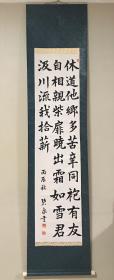 休道他鄉多苦辛同袍有友
自相親柴扉曉出霜如雪君
汲川流我拾薪
丙辰秋